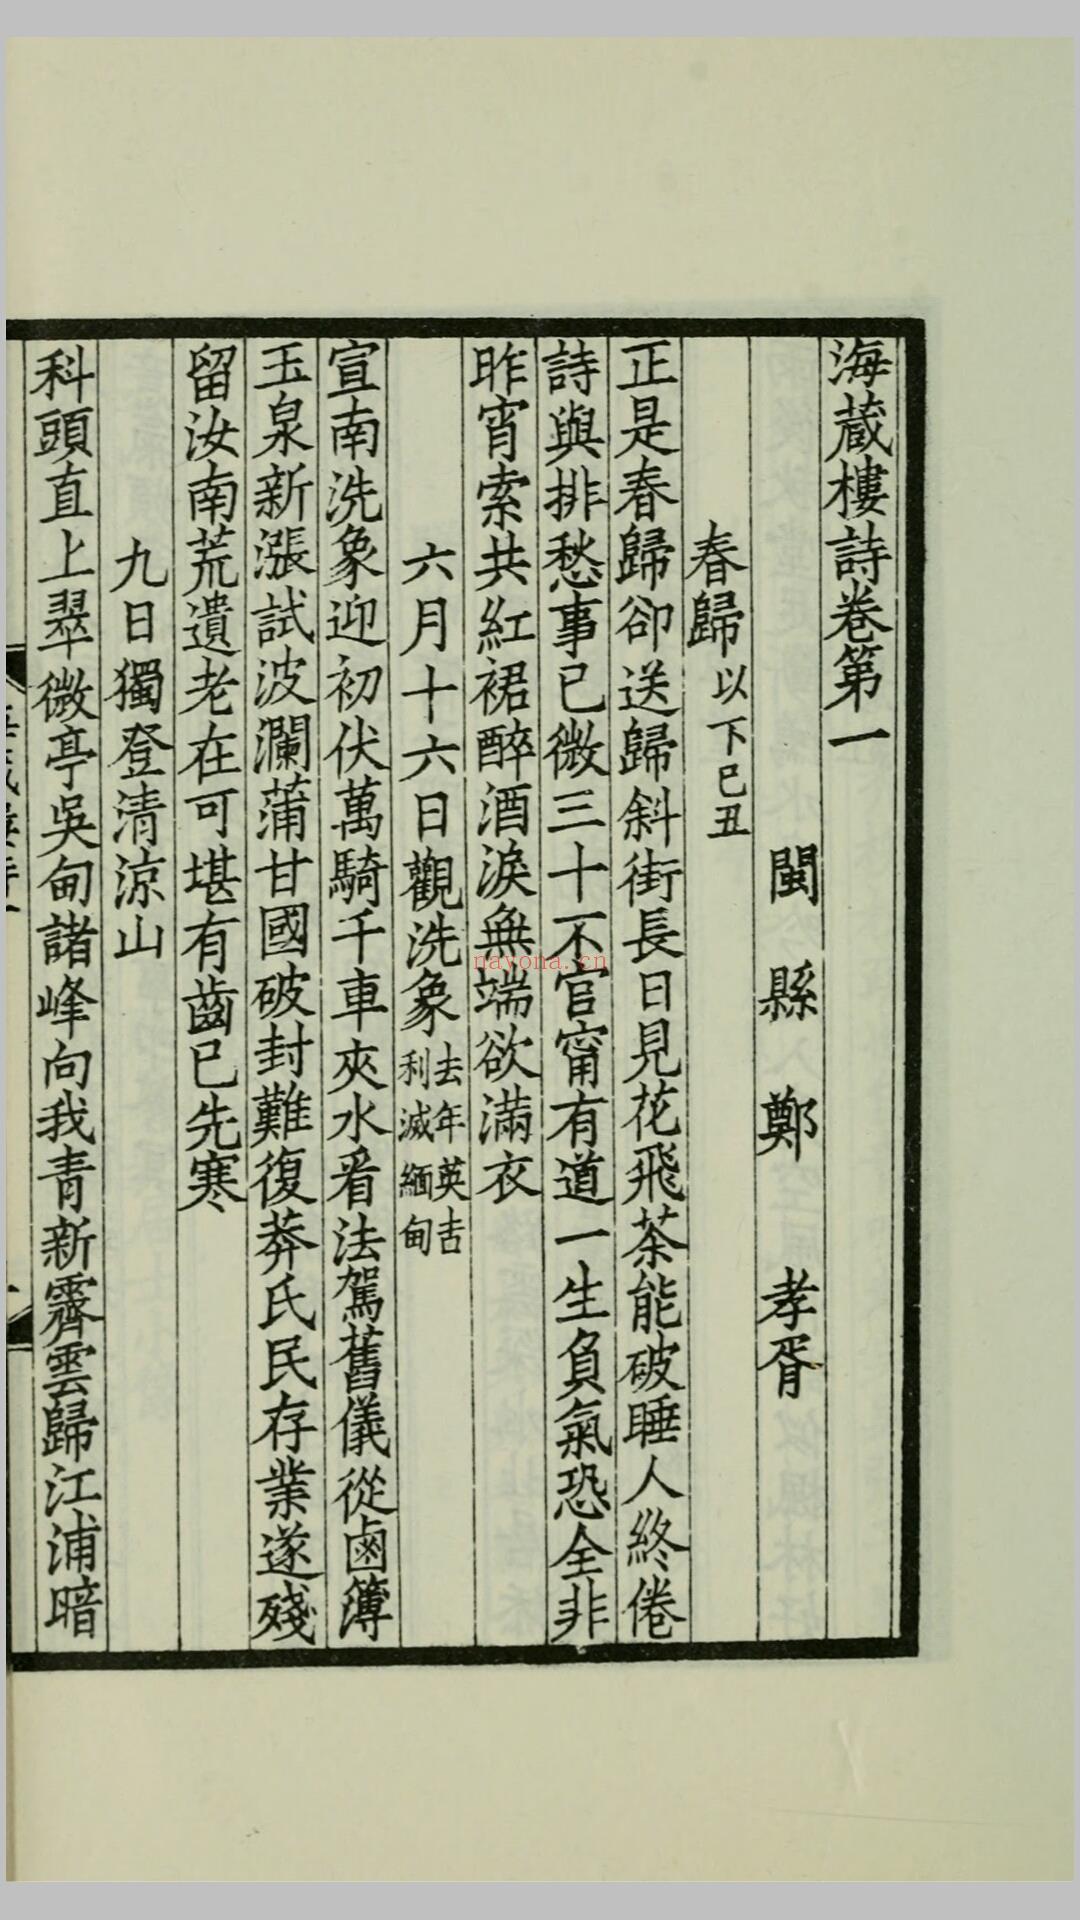 海藏樓詩卷第一
閩縣鄭孝胥
春歸以下己丑
正是春歸卻送歸斜街長日見花飛茶能破睡人終倦
詩與排愁事已微三十不官甯有道一生負氣恐全非
昨宵索共紅裙醉酒淚無端欲滿衣
六月十六日觀洗象去年英吉利滅緬甸
宣南洗象迎初伏萬騎千車夾水看法駕舊儀從鹵簿
玉泉新漲試波瀾蒲甘國破封難復莽氏民存業遂殘
留汝南荒遺老在可堪有齒已先寒
九日獨登清涼山
科頭直上翠微亭吳甸諸峰向我青新霽雲歸江浦暗
nayona.cn